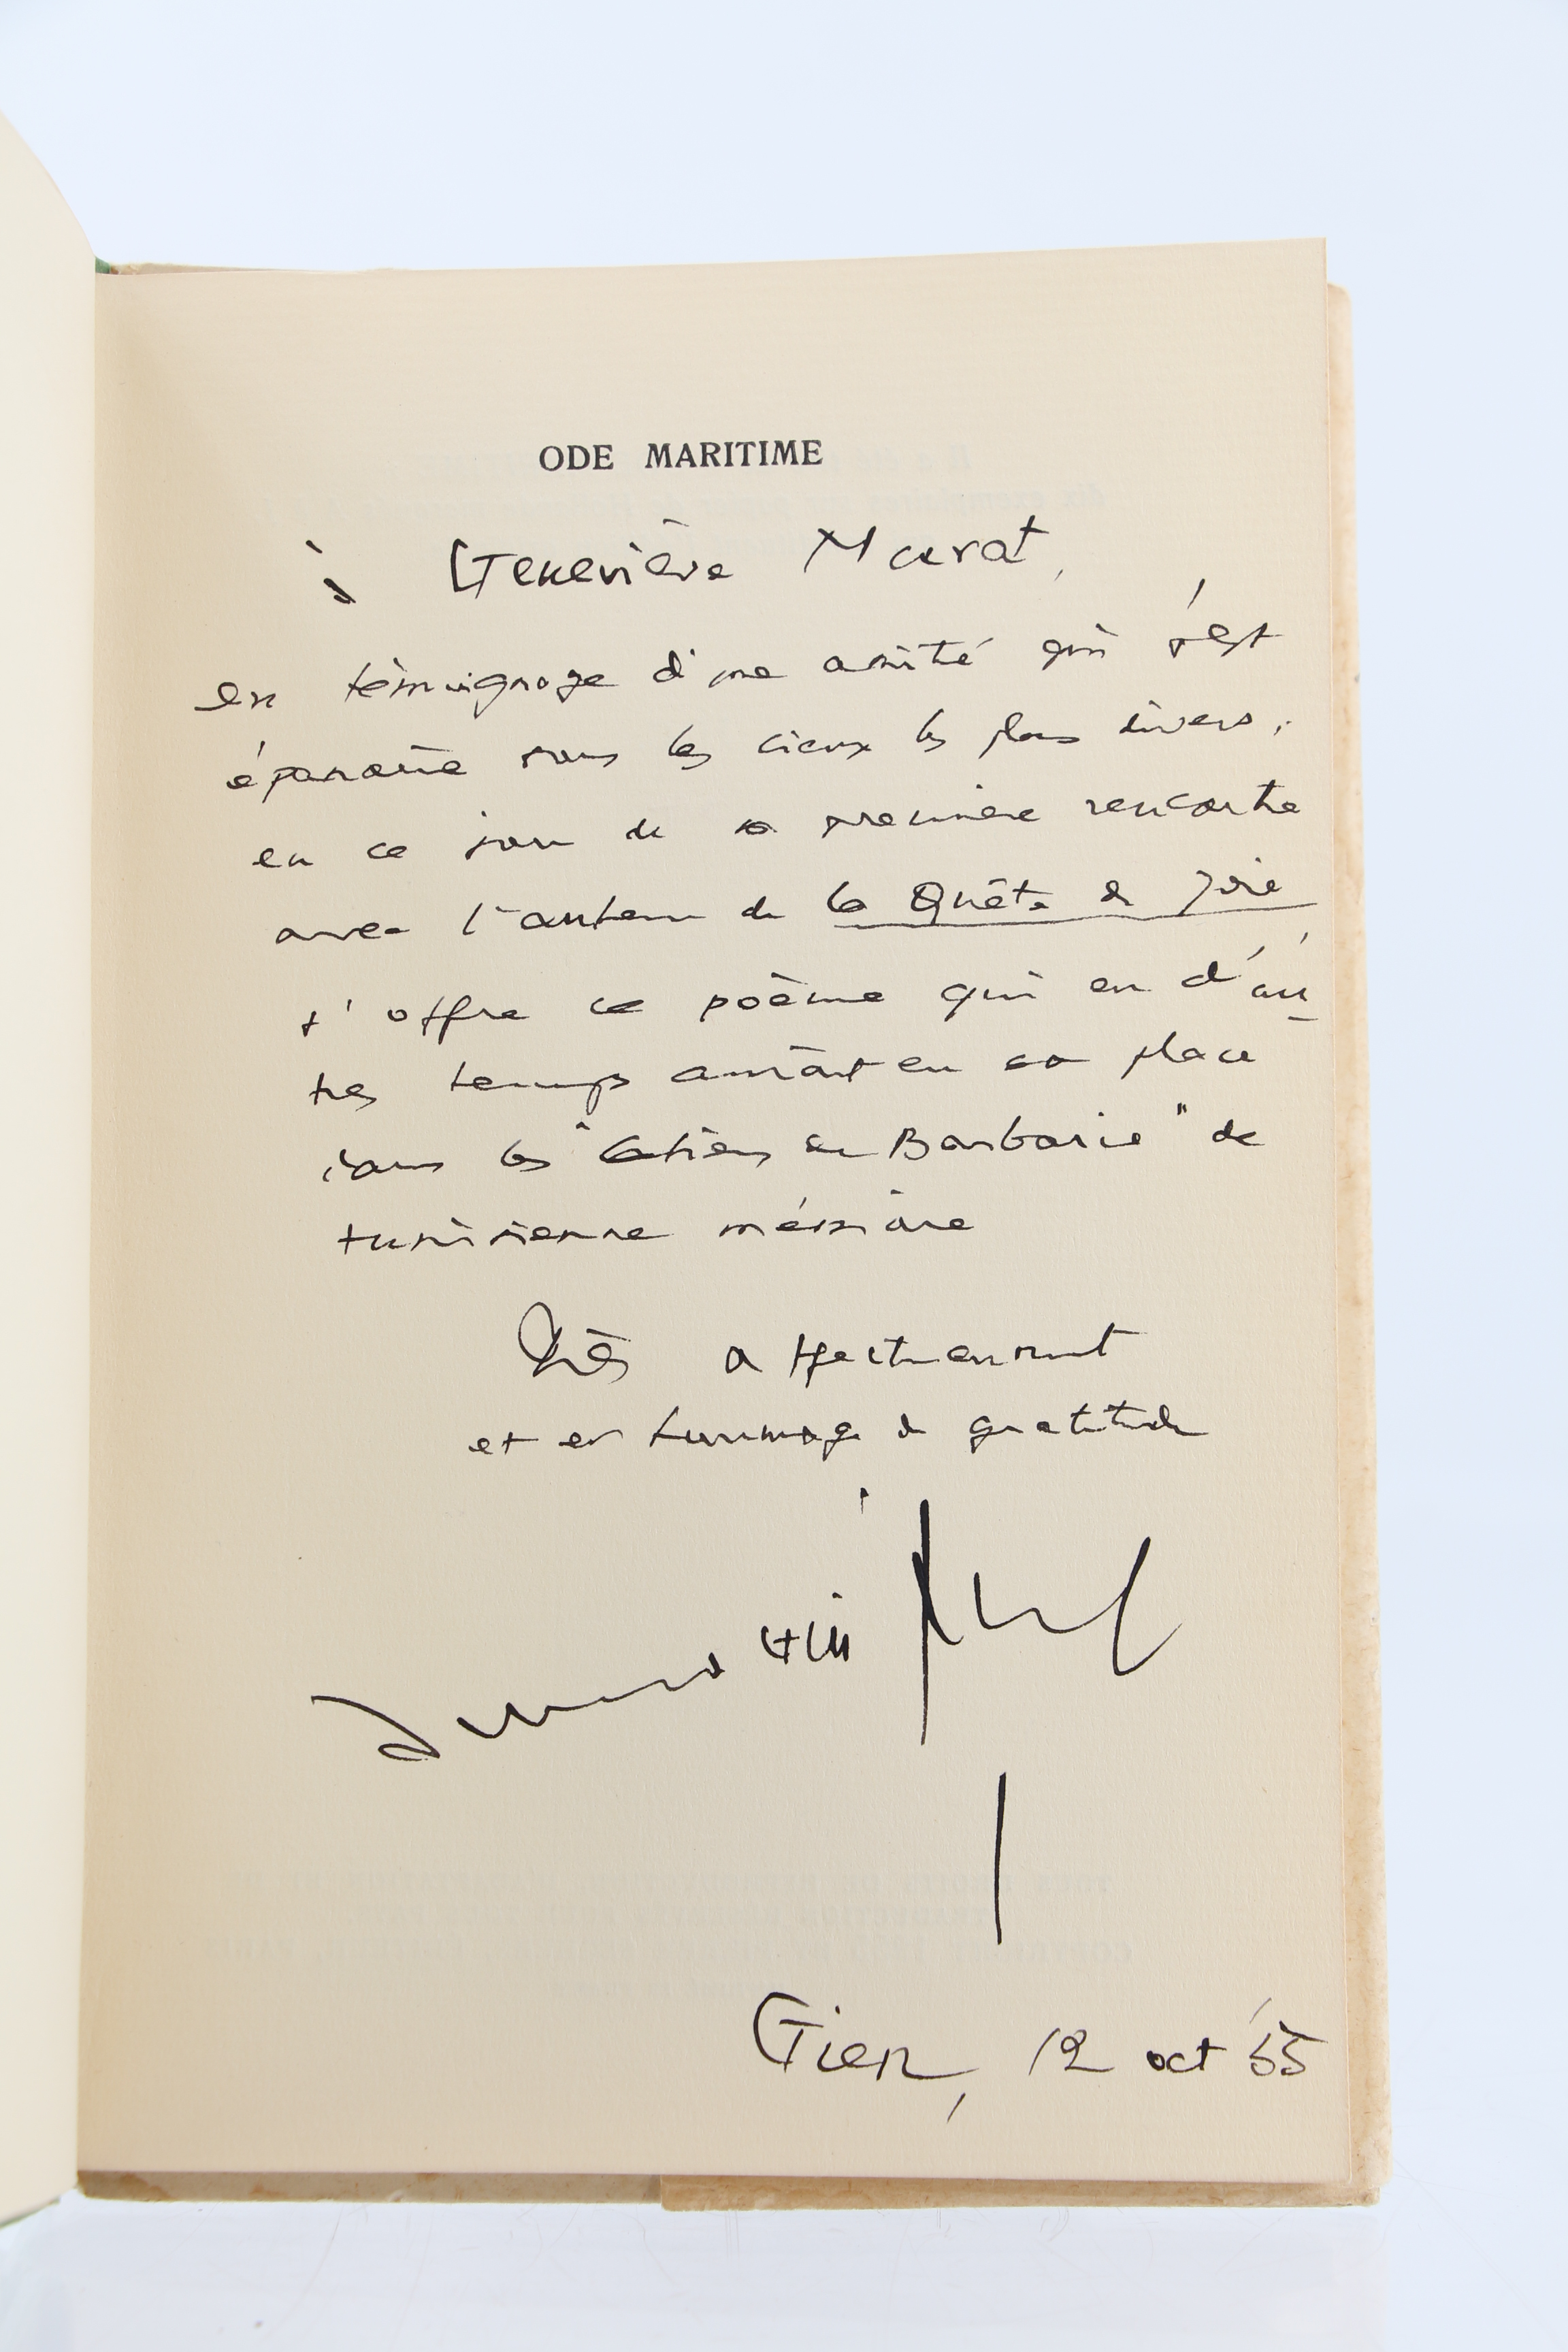 ODE MARITIME
à Geneviève Murat,
en témoignage d'une amitié qui s'est
épanouie sous les cieux les plus divers,
en ce jour de sa première rencontre
avec l'auteur de la Quête de Joie
s'offre ce poème qui en d'au-
tres temps aurait eu sa place
dans les "Cahiers de Barbarie" de
tunisienne mémoire
Très affectueusement
et en hommage de gratitude
Armand Guibert
Gien, 12 oct 55